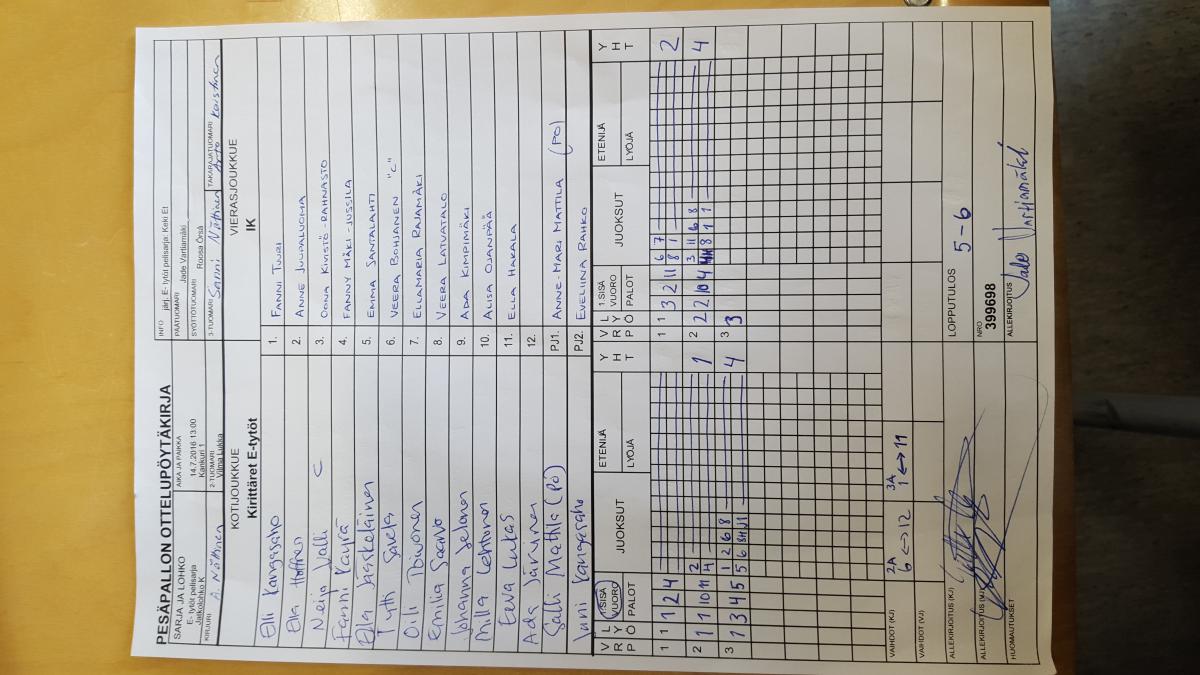 PESÄPALLON OTTELUPÖYTÄKIRJA
SARJA JA LOHKO
E- tytöt pelisarja
Jatkolohko K
AIKA JA PAIKKA
14.7.2016 13.00
Kankuri 1
INFO järj. E- tytöt pelisarja: Keki Et
PÄÄTUOMARI Jade Vartiamäki
SYÖTTÖTUOMARI Roosa Örså
KIRJURI A. Nättinen
2-TUOMARI Vilma Lukka
3-TUOMARI Sanni Nättinen
TAKARAJATUOMARI
KOTIJOUKKUE
Kirittäret E-tytöt
VIERASJOUKKUE
IK
Elli Kangasaho 1. FANNI TUURI
Ella Hoffrén 2. ANNE JUUPALUOMA
Neija Valli C 3. OONA KIVISTÖ-RAHNASTO
Fanni Käyrä 4. FANNY MÄKI-JUSSILA
Ella Jääskeläinen 5. EMMA SANTALAHTI
Tytti Savela 6. VEERA BOHJANEN "C"
Oili Toivonen 7. ELLAMARIA RAJAMÄKI
Emilia Saarvo 8. VEERA LATVATALO
Johanna Selonen 9. ADA KIMPIMÄKI
Milla Lehtonen 10. ALISA OJANPÄÄ
Eeva Lukas 11. ELLA HAKALA
Ada Järvinen 12.
Salli Mattila (PO) PJ1. ANNE-MARI MATTILA (PO)
Juni Kangasaho PJ2. EVELIINA RAHKO
V L
R Y
P Ö
1.SISÄ
VUORO
PALOT
JUOKSUT
ETENIJÄ
LYÖJÄ
Y
H
T
V L
R Y
P Ö
1.SISÄ
VUORO
PALOT
JUOKSUT
ETENIJÄ
LYÖJÄ
Y
H
T
1 1 1 2 4
1 1 3 2 11 6 7 2
8 1
2 1 1 10 11 2 1
4
2 2 2 10 4 3 11 6 8 4
8 1 1
3 1 3 4 5 1 2 6 8 4
5 6 11
3 3
VAIHDOT (KJ) 2A 6 <-> 12 3A 1 <-> 11
VAIHDOT (VJ)
ALLEKIRJOITUS (KJ)
LOPPUTULOS 5-6
ALLEKIRJOITUS (VJ)
NRO
399698
HUOMAUTUKSET
ALLEKIRJOITUS Jade Vartiamäki